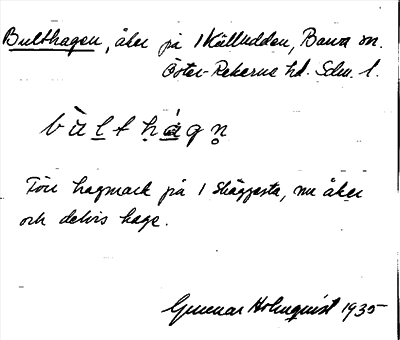 Bulthagen, åker på 1 Källudden, Barva sn.
Öster-Rekarne hd. Sdm. l.
bùlthágn̥
Förr hagmark på 1 Skäggesta, nu åker
och delvis hage.
Gunnar Holmquist 1935